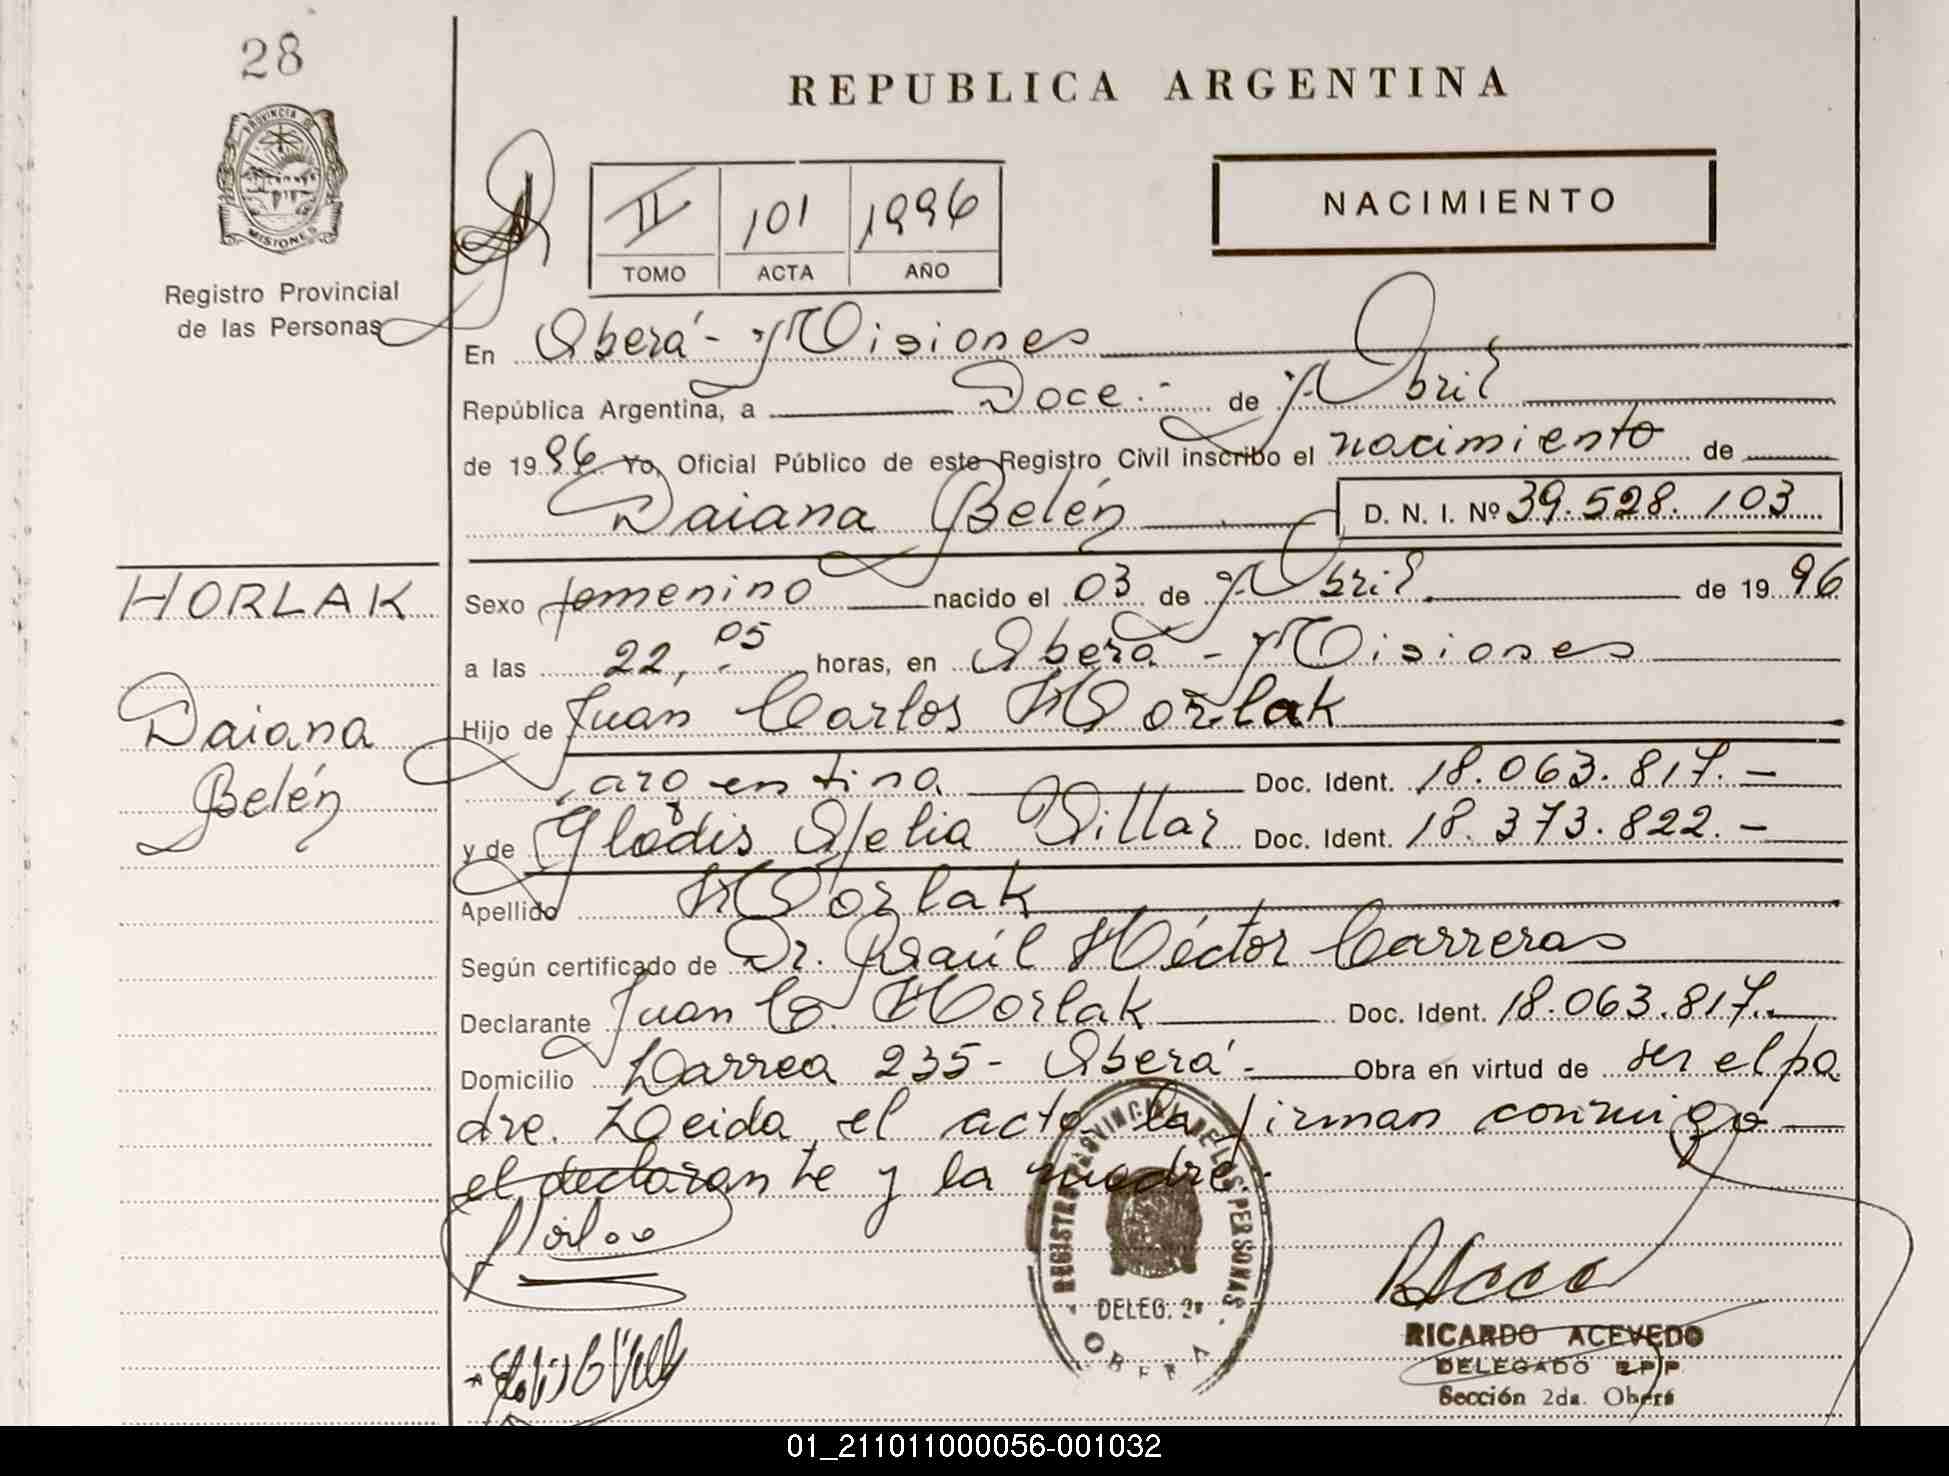 28
REPUBLICA ARGENTINA
PROVINCIA DE
MISIONES
Registro Provincial
de las Personas
II 101 1996
TOMO ACTA AÑO
NACIMIENTO
En Oberá - Misiones
República Argentina, a Doce.- de Abril
de 1996 Yo, Oficial Público de este Registro Civil inscribo el nacimiento de
Daiana Belén D. N. I. Nº 39.528.103
HORLAK
Daiana
Belén
Sexo femenino nacido el 03 de Abril de 1996
a las 22,05 horas, en Oberá - Misiones
Hijo de Juan Carlos Horlak
argentino Doc. Ident. 18.063.817.-
y de Gladis Ofelia Villar Doc. Ident. 18.373.822.-
Apellido Horlak
Según certificado de Dr. Raúl Héctor Carreras
Declarante Juan C. Horlak Doc. Ident. 18.063.817.-
Domicilio Larrea 235- Oberá.- Obra en virtud de ser el pa
dre. Leida el acta la firman conmigo
el declarante y la madre.
REGISTRO PROVINCIAL DE LAS PERSONAS
DELEG. 2ª
OBERA
RICARDO ACEVEDO
DELEGADO R.P.P.
Sección 2da. Oberá
01_211011000056-001032